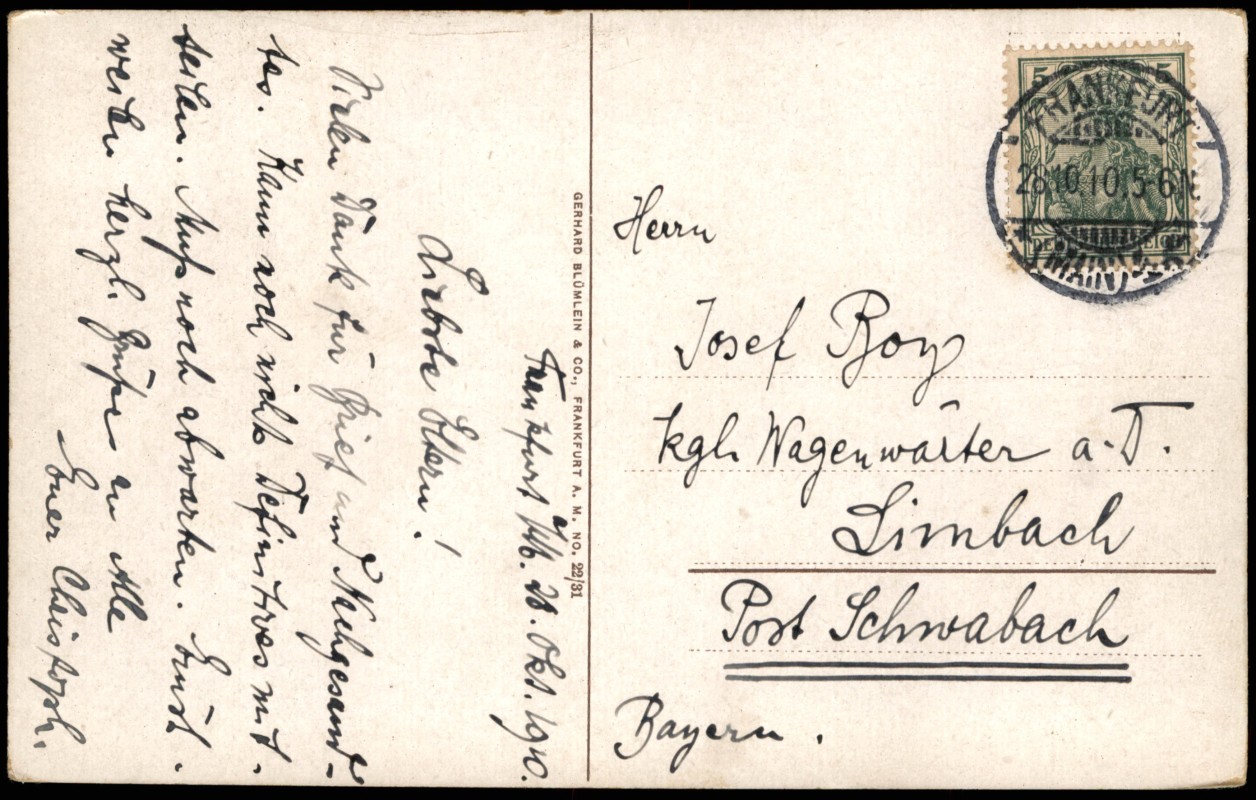 Frankfurt a/M. 28. Okt. 1910.
Liebste Eltern!
Vielen Dank für Brief und Nachgesand-
tes. Kann noch nichts Definitives mit-
teilen. Muß noch abwarten.
weilen herzl. Grüße an Alle
Euer Christoph.
GERHARD BLÜMLEIN & CO., FRANKFURT A. M. NO. 22/31
5 5
DEUTSCHES REICH
FRANKFURT
28.10.10.5-6N
(MAIN)
Herrn
Josef Boy
kgl. Wagenwärter a. D.
Limbach
Post Schwabach
Bayern.